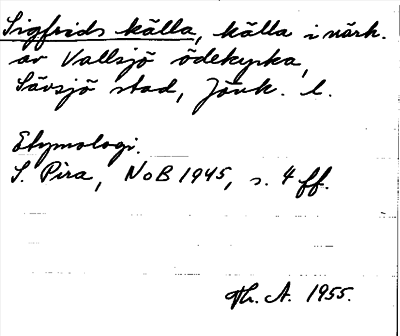 Sigfrids källa, källa i närh.
av Vallsjö ödekyrka,
Sävsjö stad, Jönk. l.
Etymologi.
S. Pira, NoB 1945, s. 4 ff.
Th. A. 1955.